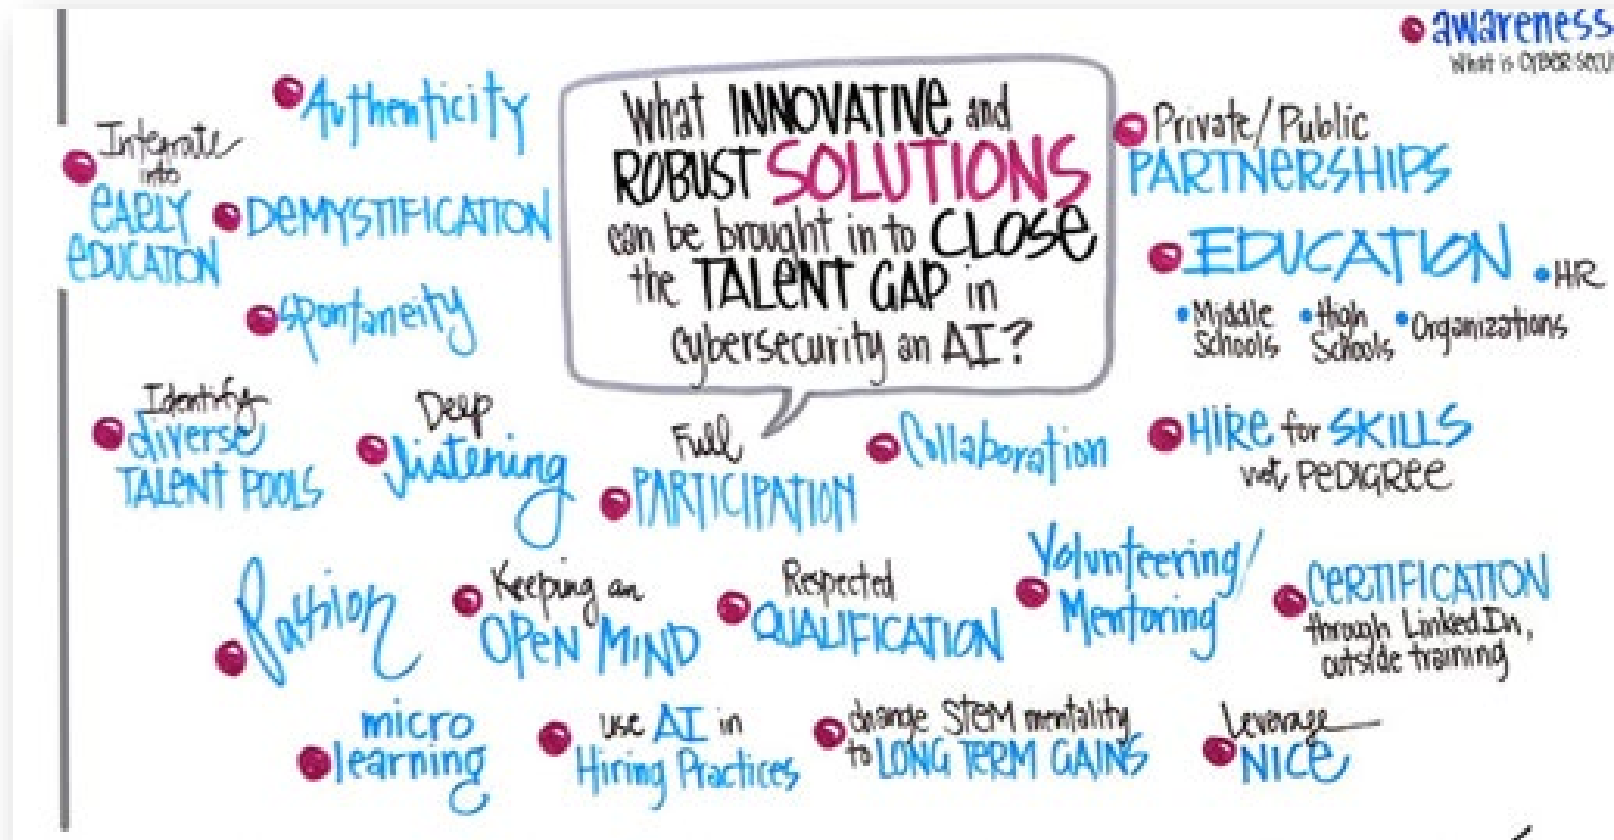 awareness
What is CYBER SECU
Authenticity
Integrate
into
EARLY
EDUCATION
DEMYSTIFICATION
Spontaneity
What INNOVATIVE and
ROBUST SOLUTIONS
can be brought in to CLOSE
the TALENT GAP in
cybersecurity an AI?
Private/Public
PARTNERSHIPS
EDUCATION
HR
Middle
Schools
High
Schools
Organizations
Identify
diverse
TALENT POOLS
Deep
listening
Full
PARTICIPATION
Collaboration
HIRE for SKILLS
not PEDIGREE
Passion
Keeping an
OPEN MIND
Respected
QUALIFICATION
Volunteering/
Mentoring
CERTIFICATION
through LinkedIn,
outside training
micro
learning
use AI in
Hiring Practices
change STEM mentality
to LONG TERM GAINS
Leverage
NICE